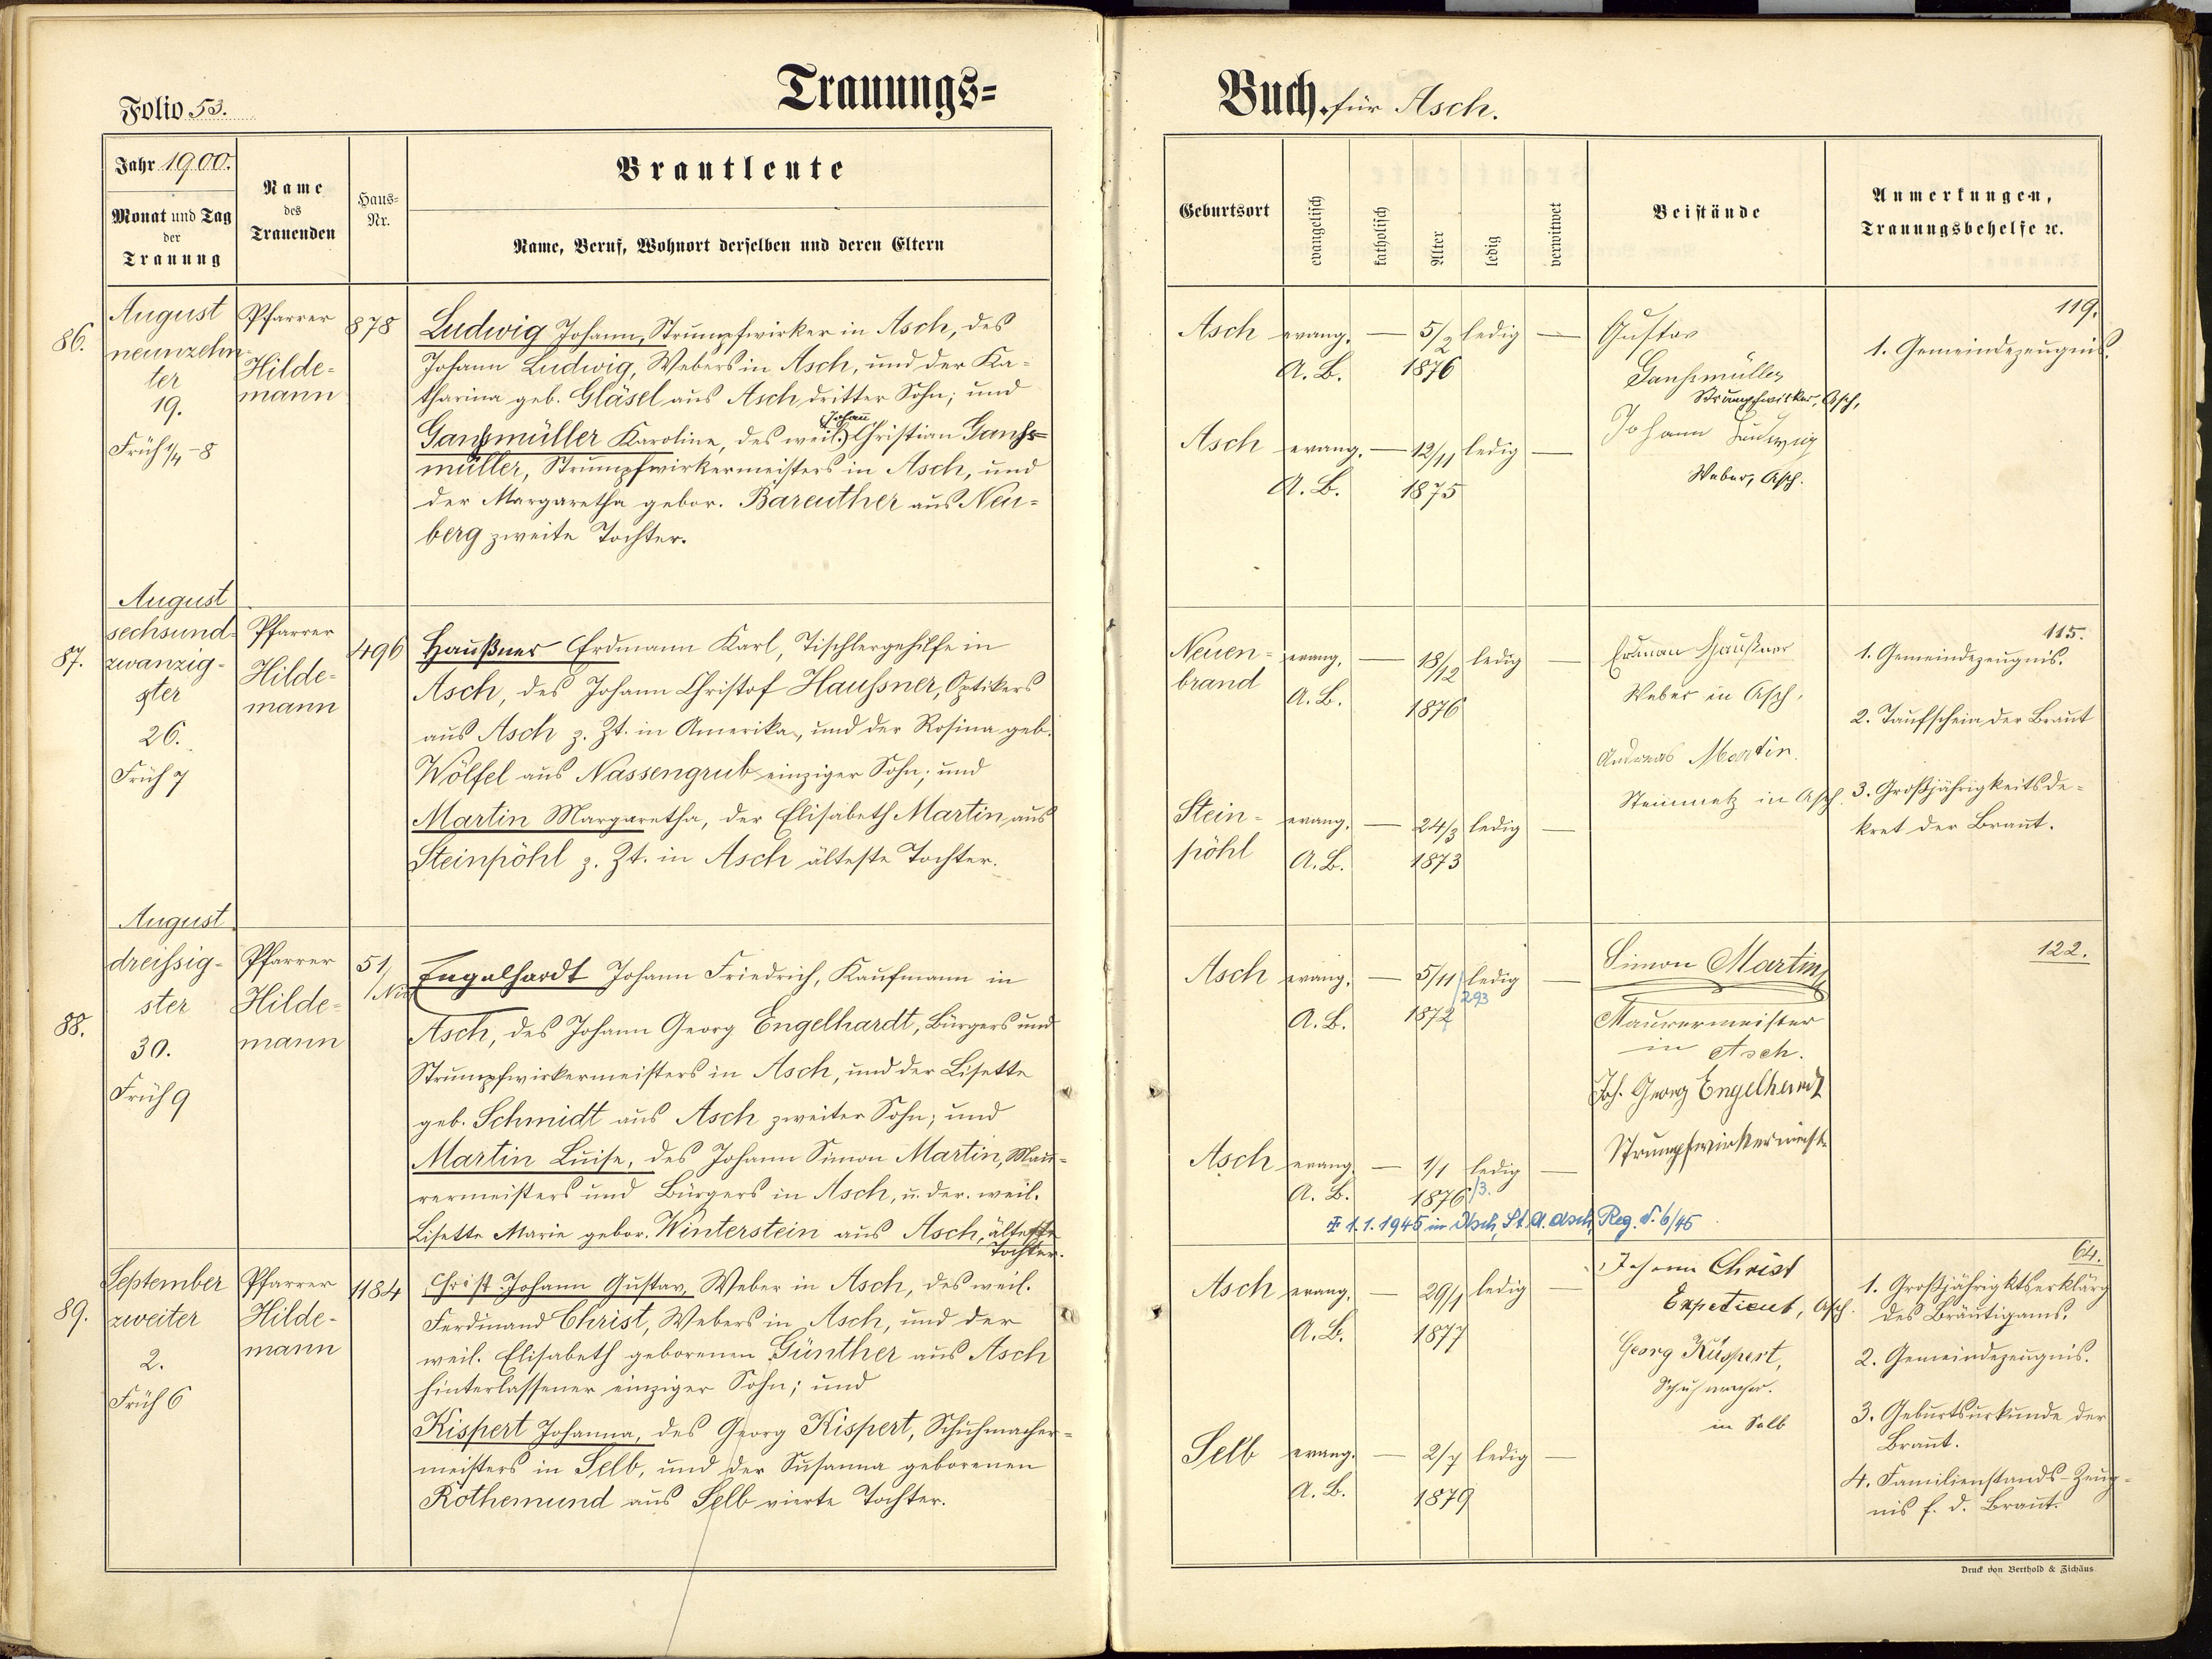 Trauungs=
Folio 53.
Jahr 1900.
Monat und Tag
der
Trauung
Name
des
Trauenden
Haus=
Nr.
Brautleute
Name, Beruf, Wohnort derselben und deren Eltern
86.
August
neunzehn-
ter
19.
Früh ¼-8
Pfarrer
Hilde-
mann
878
Ludwig Johann, Strumpfwirker in Asch, des
Johann Ludwig, Webers in Asch, und der Ka-
tharina geb. Gläsel aus Asch dritter Sohn; und
Johan̄
Ganßmüller Karoline, des weil. Christian Ganß=
müller, Strumpfwirkermeisters in Asch, und
der Margaretha gebor. Bareuther aus Neu-
berg zweite Tochter.
87.
August
sechsund-
zwanzig-
ster
26.
Früh 7
Pfarrer
Hilde-
mann
496
Haußner Erdmann Karl, Tischlergehilfe in
Asch, des Johann Christof Haußner, Optikers
aus Asch z. Zt. in Amerika, und der Rosina geb.
Wölfel aus Nassengrub einziger Sohn; und
Martin Margaretha, der Elisabeth Martin aus
Steinpöhl z. Zt. in Asch älteste Tochter.
88.
August
dreißig-
ster
30.
Früh 9
Pfarrer
Hilde-
mann
51/
Engelhardt Johann Friedrich, Kaufmann in
Asch, des Johann Georg Engelhardt, Bürgers und
Strumpfwirkermeisters in Asch, und der Lisette
geb. Schmidt aus Asch zweiter Sohn; und
Martin Luise, des Johann Simon Martin, Mau-
rermeisters und Bürgers in Asch, u. der weil.
Lisette Marie gebor. Winterstein aus Asch, älteste
Tochter.
89.
September
zweiter
2.
Früh 6
Pfarrer
Hilde-
mann
1184
Christ Johann Gustav, Weber in Asch, des weil.
Ferdinand Christ, Webers in Asch, und der
weil. Elisabeth geborenen Günther aus Asch
hinterlassener einziger Sohn; und
Kispert Johanna, des Georg Kispert, Schuhmacher-
meisters in Selb, und der Susanna geborenen
Rothemund aus Selb vierte Tochter.
Buch. für Asch.
Geburtsort
evangelisch
katholisch
Alter
ledig
verwitwet
Beistände
Anmerkungen,
Trauungsbehelfe ꝛc.
Asch evang. — 5/2 ledig —
A. B. 1876
Gustav
Ganßmüller
Strumpfwirker, Asch,
119.
1. Gemeindezeugnis.
Asch evang. — 12/11 ledig —
A. B. 1875
Johann Ludwig
Weber, Asch.
Neuen-
brand
evang. — 18/12 ledig —
A. B. 1876
Erdman Haußner
Weber in Asch,
115.
1. Gemeindezeugnis.
2. Taufschein der Braut
Andreas Martin.
Steinmetz in Asch.
3. Großjährigkeitsde-
kret der Braut.
Stein-
pöhl
evang. — 24/3 ledig —
A. B. 1873
Asch evang. — 5/11 ledig —
293
A. B. 1872
Simon Martin,
Maurermeister
in Asch.
122.
Joh. Georg Engelhardt
Strumpfwirkermeister
Asch evang. — 1/1 ledig —
A. B. 1876 /3.
1.1.1945 in Asch, St. A. Asch, Reg. S. 6/45
Asch evang. — 29/1 ledig —
A. B. 1877
Johann Christ
Expedient, Asch.
Georg Küspert,
Schuhmacher.
in Selb
64.
1. Großjährigktserklärg
des Bräutigams.
2. Gemeindezeugnis.
3. Geburtsurkunde der
Braut.
4. Familienstands-Zeug-
nis f. d. Braut.
Selb evang. — 2/7 ledig —
A. B. 1879
Druck von Berthold & Zichäus